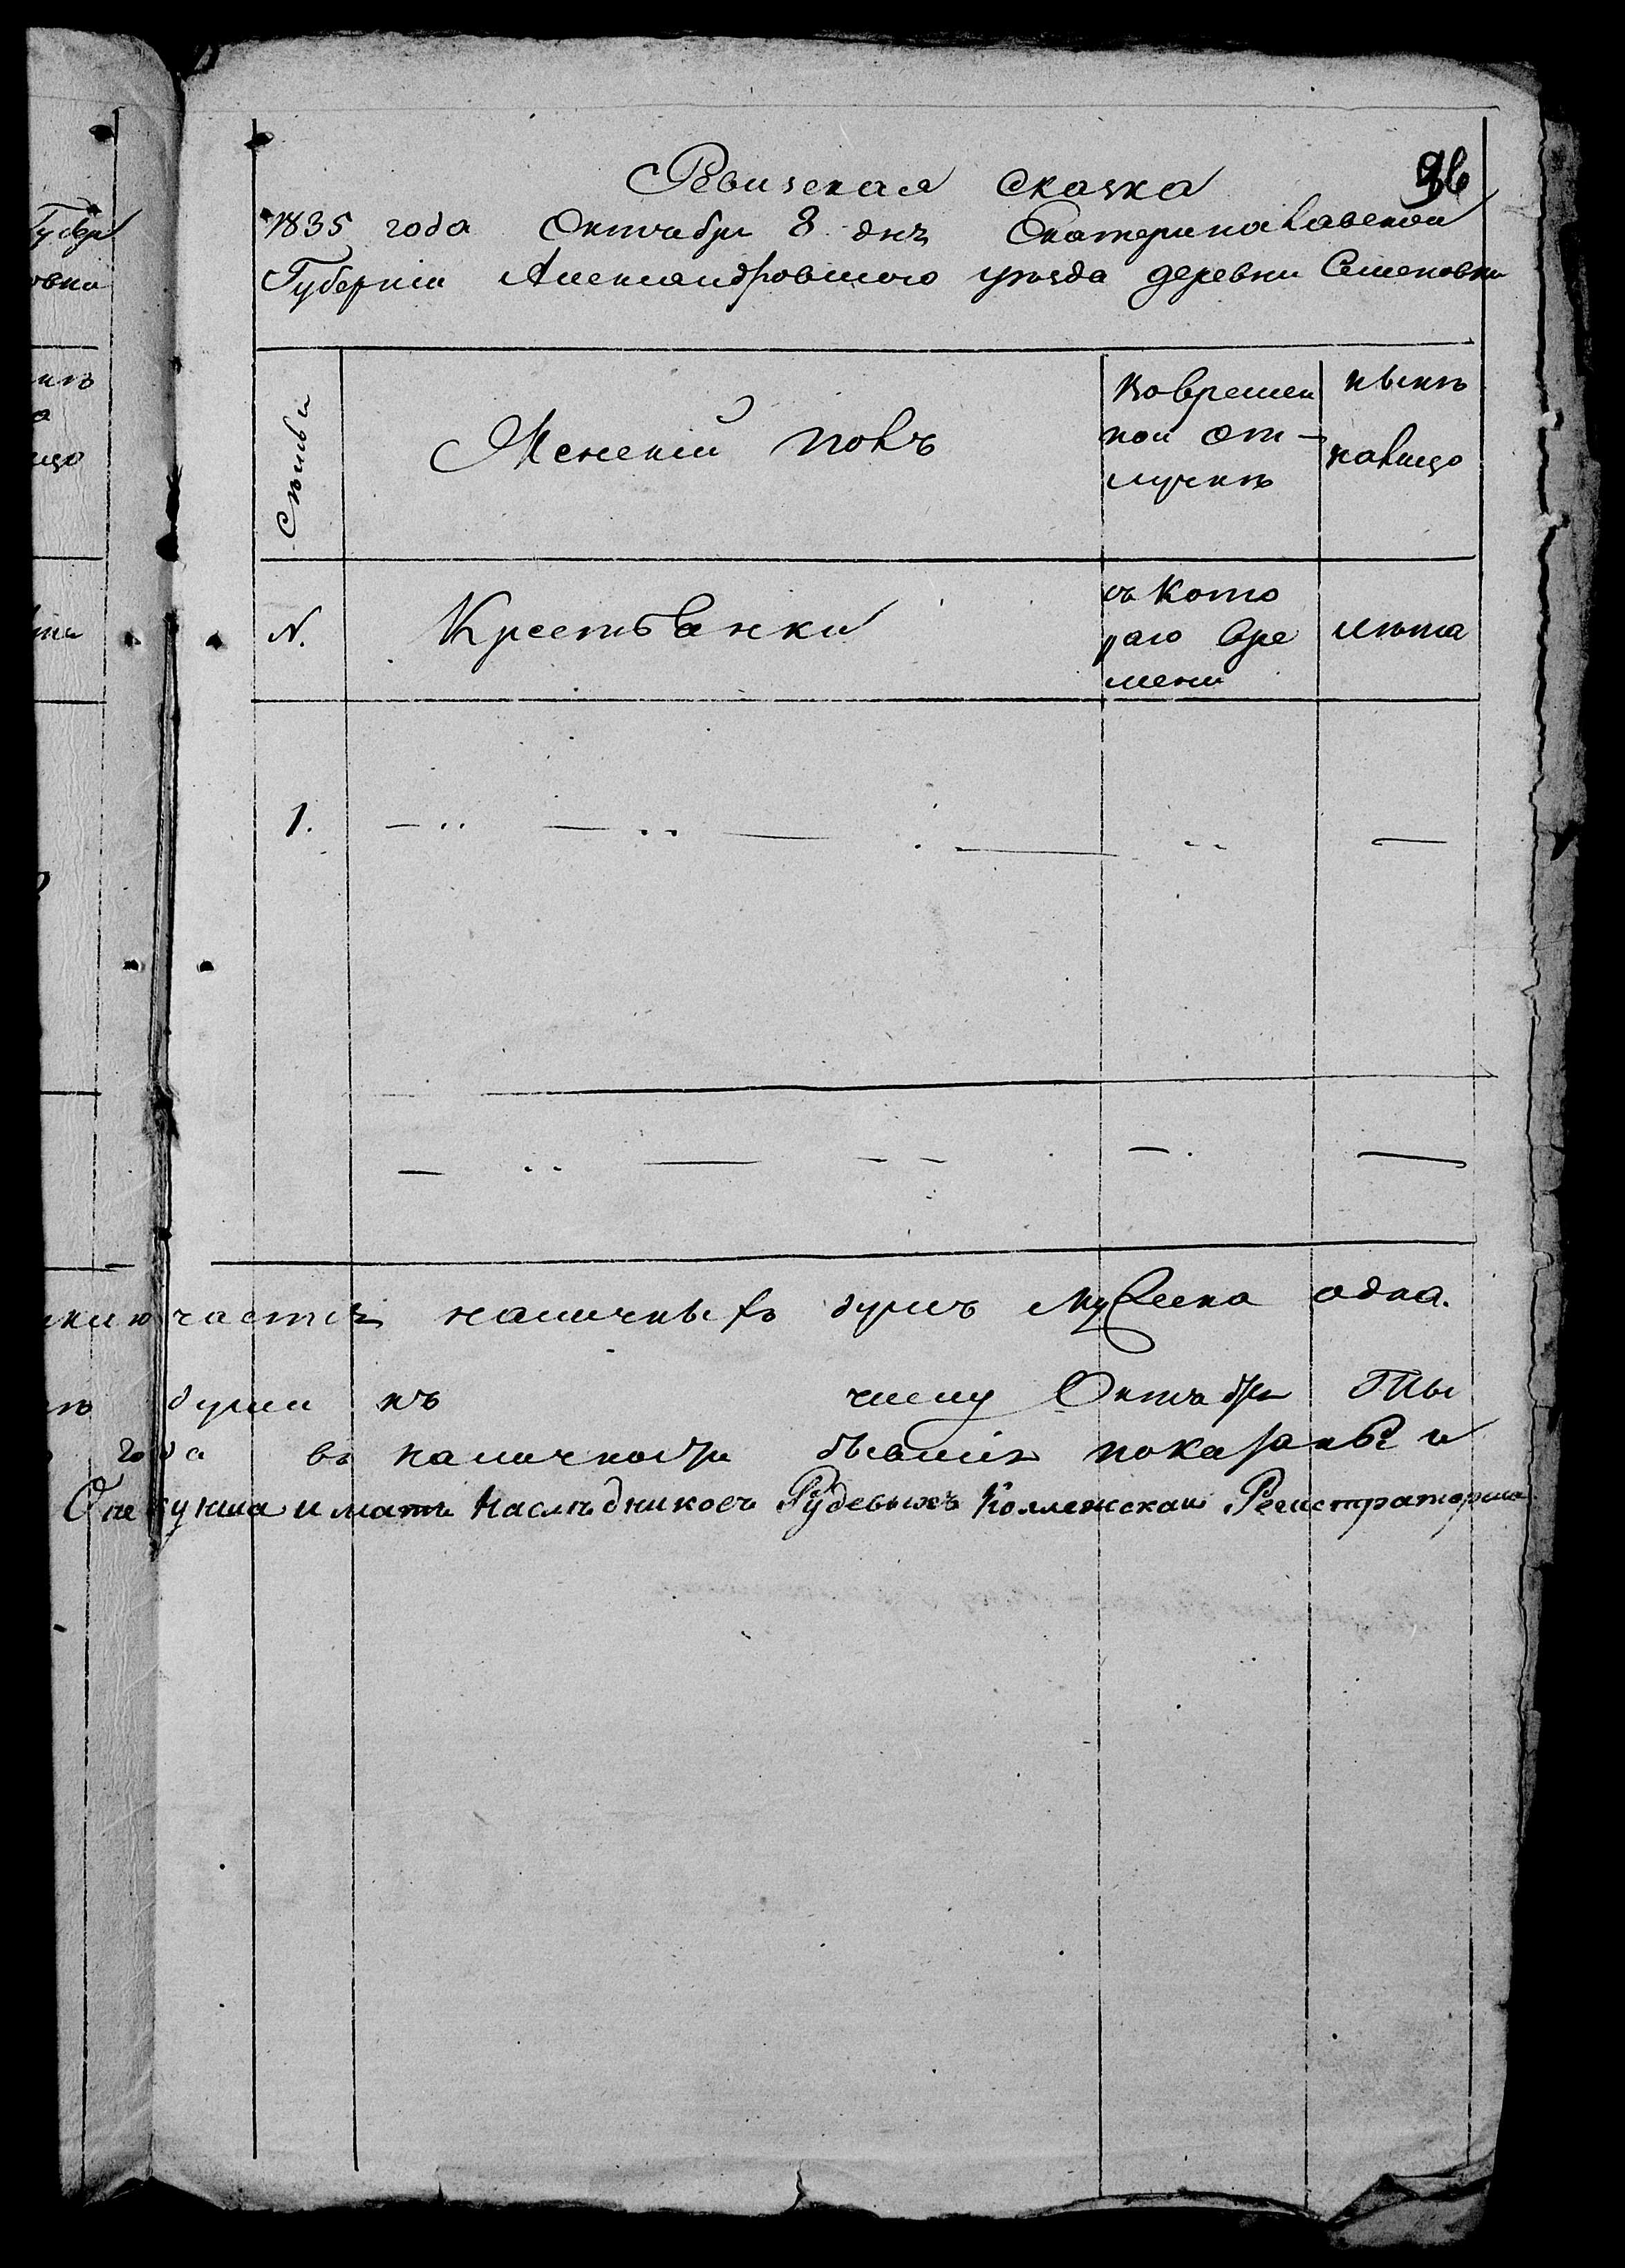 96
Ревизская сказка
1835 года Октября 8 дня Екатеринославской
Губернiи Александровскаго уѣзда деревни Семеновки
Семьи
Женскiй полъ
Во времен
ной от-
лучкѣ
нынѣ
на лицо
N.
Крестьянки
съ кото
раго вре
мени
лѣта
1.
частей наличныхъ душъ мужеска одна.
души къ числу Октября
года въ наличности бывшiя показаны и
Опекунша и мать Наслѣдниковъ Рудевыхъ Коллежская Регистраторша